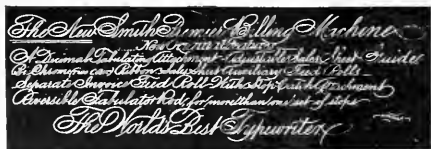 The New Smith Premier Billing Machine
A Decimal Tabulating Attachment Adjustable Sales Sheet Guides
Bi-Chrome Ribbon Sales Sheet Auxiliary Feed Rolls
Separate Invoice Feed Roll With Stop Attachment
Reversible Tabulator Rod, for more than one set of stops
The World's Best Typewriter